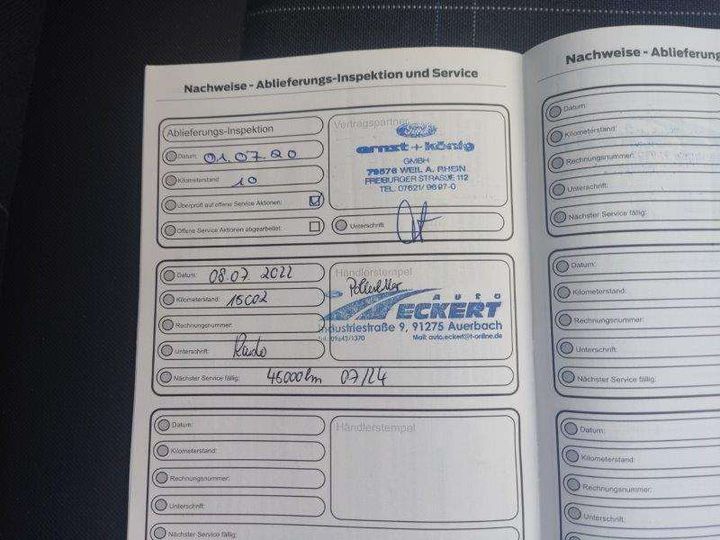 Nachweise - Ablieferungs-Inspektion und Service
Ablieferungs-Inspektion
Datum: 01.07.20
Kilometerstand: 10
Überprüft auf offene Service Aktionen:
Offene Service Aktionen abgearbeitet:
Vertragspartner
Ford
arnzt + könig
GMBH
79576 WEIL A. RHEIN
FREIBURGER STRASSE 112
TEL. 07621/ 9697-0
Unterschrift:
Datum: 08.07. 2022
Kilometerstand: 15002
Rechnungsnummer:
Unterschrift:
Nächster Service fällig: 45000km 07/24
Händlerstempel
AUTO
ECKERT
Industriestraße 9, 91275 Auerbach
Tel. 09643/1370 Mail: auto.eckert@t-online.de
Datum:
Kilometerstand:
Rechnungsnummer:
Unterschrift:
Nächster Service fällig:
Händlerstempel
Nachweise - Ablieferung
Datum:
Kilometerstand:
Rechnungsnummer:
Unterschrift:
Nächster Service fällig:
Datum:
Kilometerstand:
Rechnungsnummer:
Unterschrift:
Nächster Service fällig:
Datum:
Kilometerstand:
Rechnungsnummer:
Unterschrift: